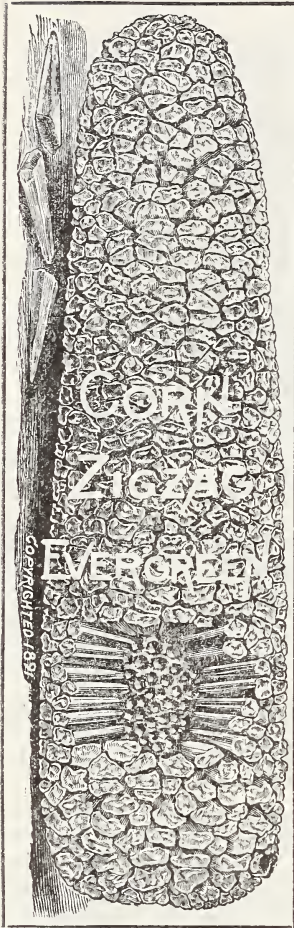 CORN
ZIGZAG
EVERGREEN
COPYRIGHTED 189